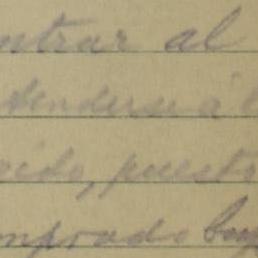 ntrar al
denderse á l
ido, puesto
mprado